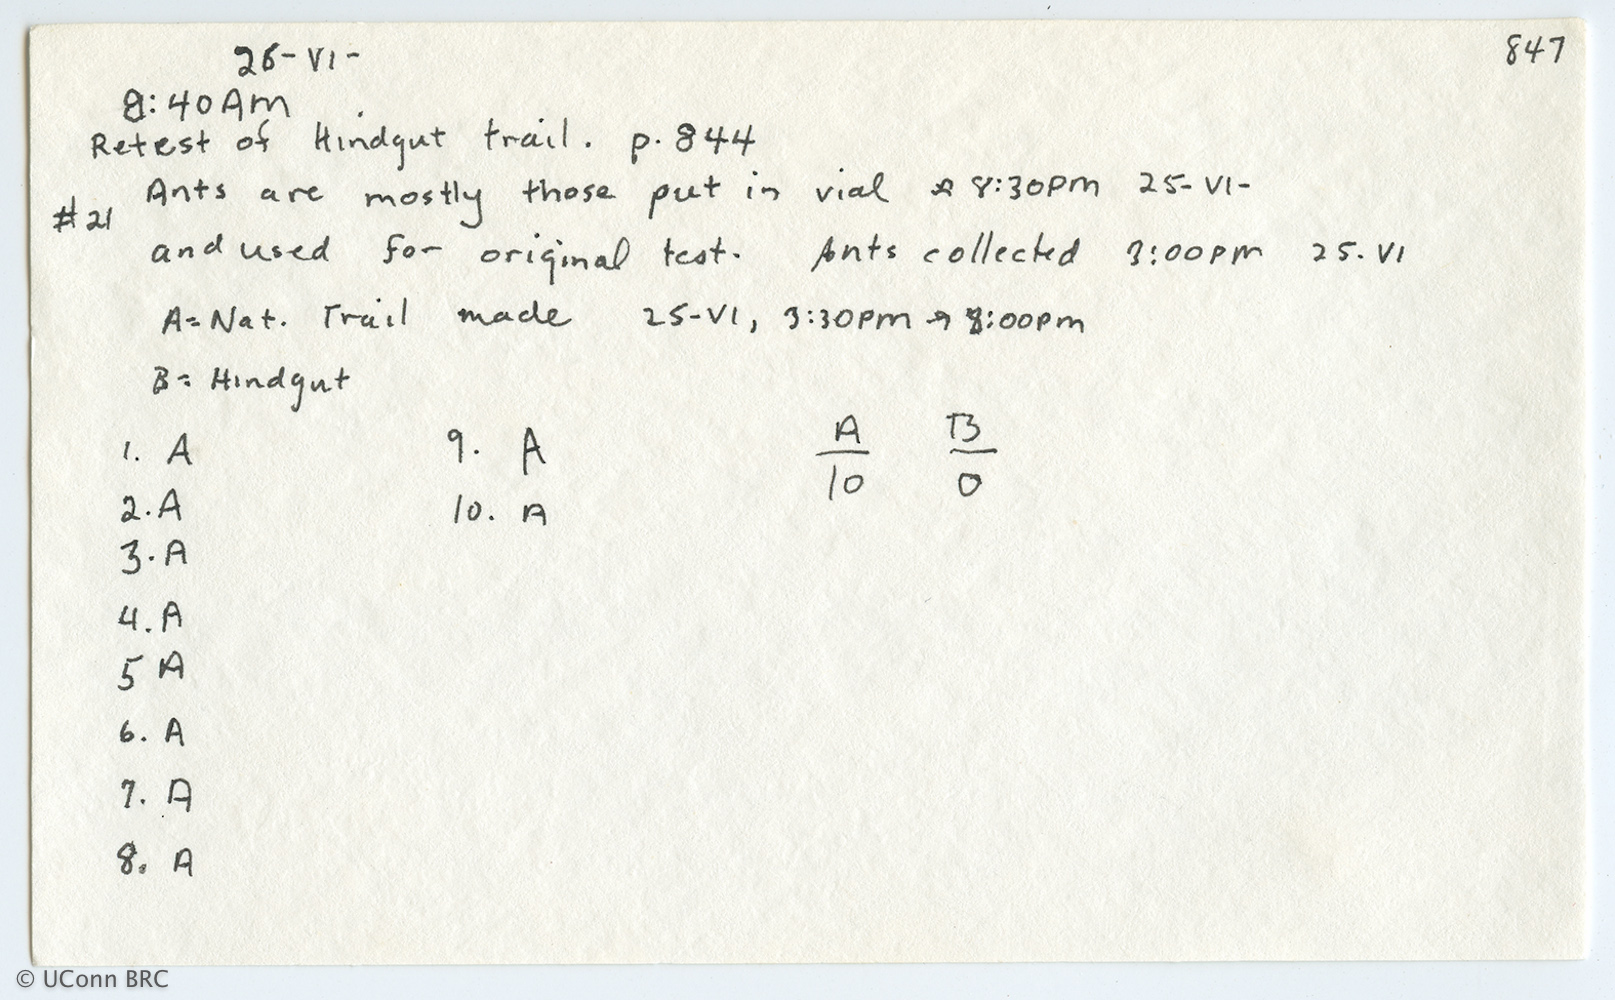 847
26-VI-
8:40Am
Retest of Hindgut trail. p. 844
Ants are mostly those put in vial 8:30pm 25-VI-
#21
and used for original test. Ants collected 3:00pm 25.VI
A= Nat. Trail made 25-VI, 3:30pm → 8:00pm
B= Hindgut
1. A
2. A
3. A
4. A
5 A
6. A
7. A
8. A
9. A
10. A
A B
10 0
© UConn BRC